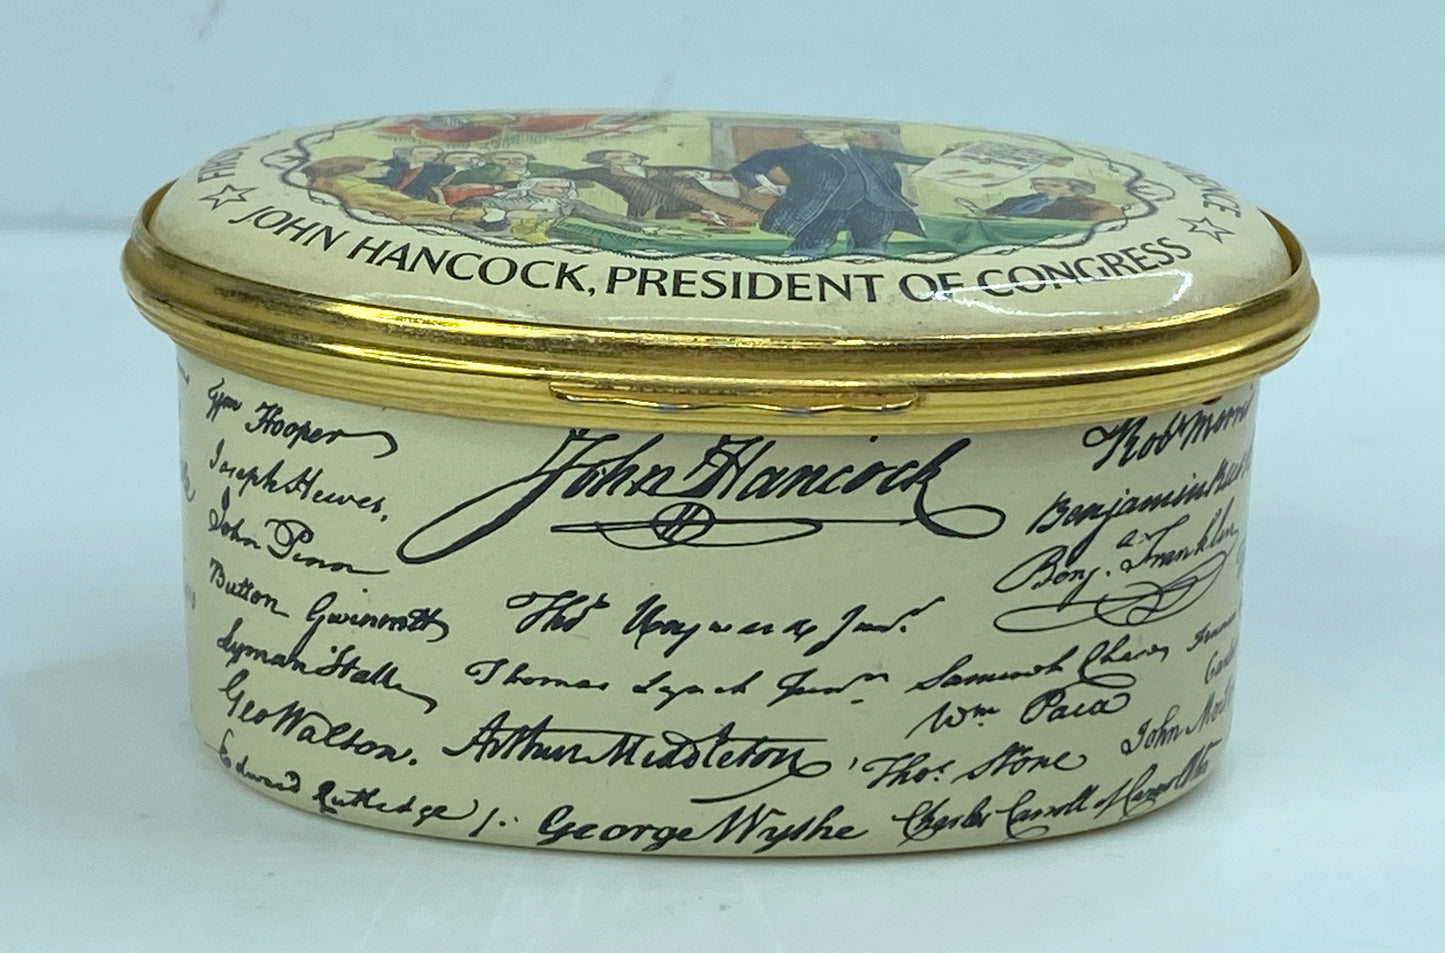 FIRST
JOHN HANCOCK, PRESIDENT OF CONGRESS
Wm Hooper
Joseph Hewes,
John Penn
Button Gwinnett
Lyman Hall
Geo Walton.
Edward Rutledge /.
John Hancock
Thos Heyward Junr.
Thomas Lynch Junr.
Arthur Middleton
George Wythe
Robt Morris
Benjamin Rush
Benj. Franklin
Samuel Chase
Wm Paca
Thos. Stone
Charles Carroll of Carrollton
John